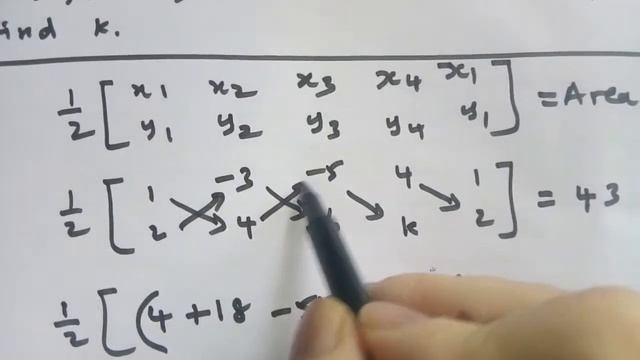 find k.
1/2 [ x1 x2 x3 x4 x1
y1 y2 y3 y4 y1 ] = Area
1/2 [ 1 -3 -5 4 1
2 4 k 2 ] = 43
1/2 [ (4 + 18 -